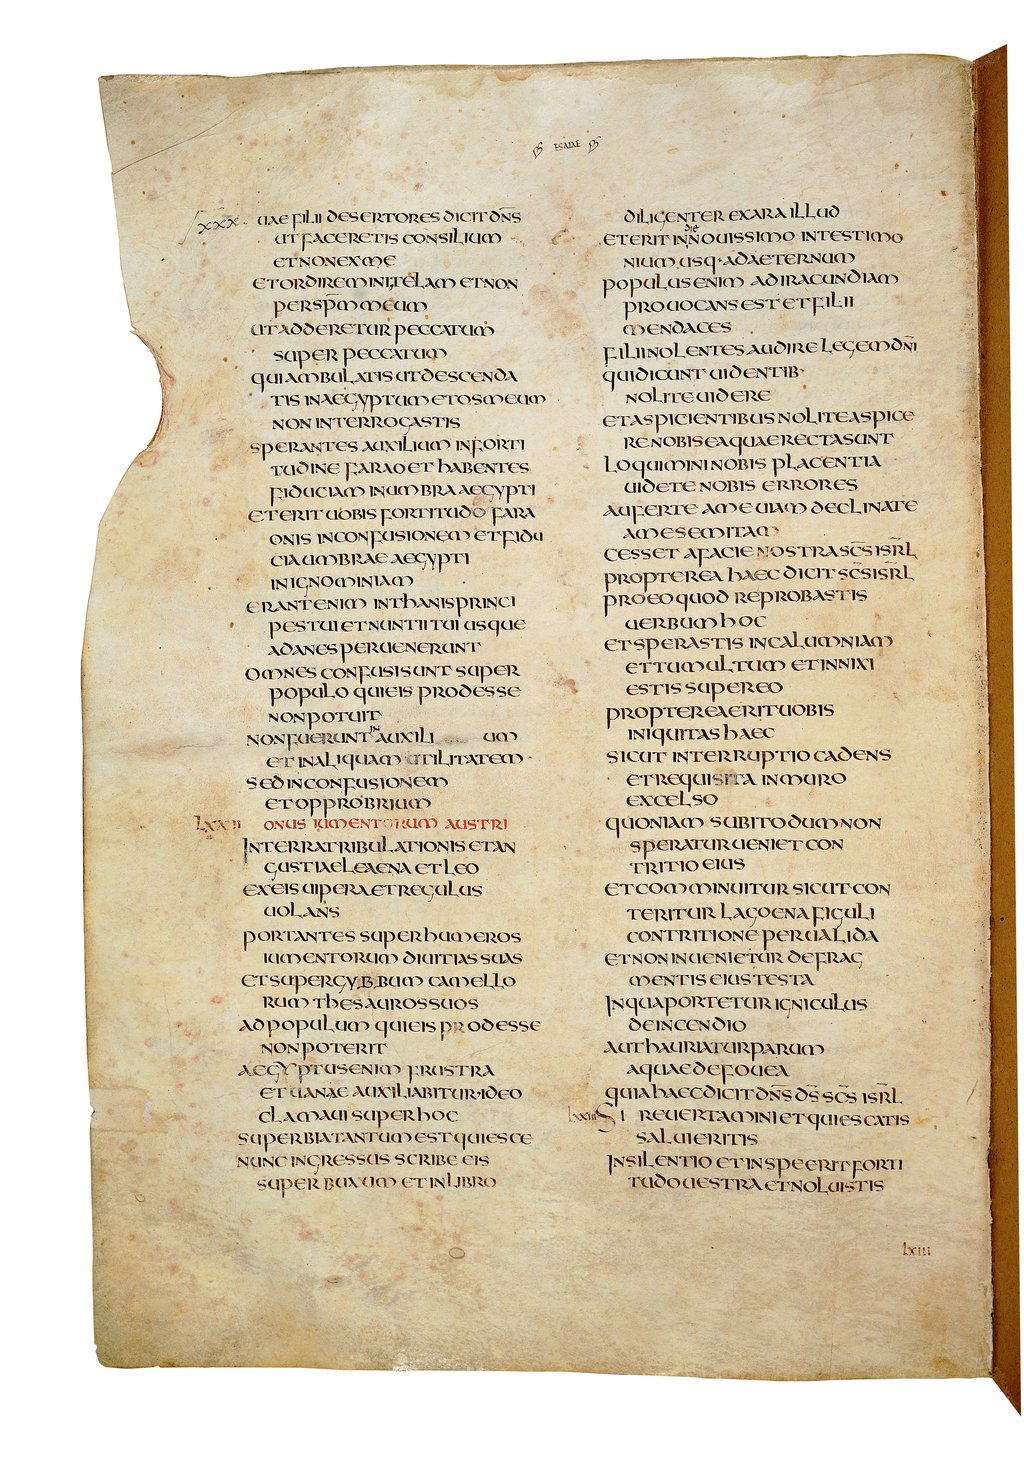 ESAIAE
LXXX UAE FILII DESERTORES DICIT DN̄S
UT FACERETIS CONSILIUM
ET NON EX ME
ET ORDIREMINI TELAM ET NON
PER SP̄M MEUM
UT ADDERETUR PECCATUM
SUPER PECCATUM
QUI AMBULATIS UT DESCENDA
TIS IN AEGYPTUM ET OS MEUM
NON INTERROGASTIS
SPERANTES AUXILIUM IN FORTI
TUDINE FARAO ET HABENTES
FIDUCIAM IN UMBRA AEGYPTI
ET ERIT UOBIS FORTITUDO FARA
ONIS IN CONFUSIONEM ET FIDU
CIA UMBRAE AEGYPTI
IN IGNOMINIAM
ERANT ENIM IN THANIS PRINCI
PES TUI ET NUNTII TUI USQUE
AD ANES PERUENERUNT
OMNES CONFUSI SUNT SUPER
POPULO QUI EIS PRODESSE
NON POTUIT
NON FUERUNT IN AUXILI UM
ET IN ALIQUAM UTILITATEM
SED IN CONFUSIONEM
ET OPPROBRIUM
LXXII ONUS IUMENTORUM AUSTRI
IN TERRA TRIBULATIONIS ET AN
GUSTIAE LEAENA ET LEO
EX EIS UIPERA ET REGULUS
UOLANS
PORTANTES SUPER HUMEROS
IUMENTORUM DIUITIAS SUAS
ET SUPER GYBBUM CAMELLO
RUM THESAUROS SUOS
AD POPULUM QUI EIS PRODESSE
NON POTERIT
AEGYPTUS ENIM FRUSTRA
ET UANAE AUXILIABITUR·IDEO
CLAMAUI SUPER HOC
SUPERBIA TANTUM EST QUIESCE
NUNC INGRESSUS SCRIBE EIS
SUPER BUXUM ET IN LIBRO
DILIGENTER EXARA ILLUD
ET ERIT IN DIE NOUISSIMO IN TESTIMO
NIUM USQ· AD AETERNUM
POPULUS ENIM AD IRACUNDIAM
PROUOCANS EST ET FILII
MENDACES
FILII NOLENTES AUDIRE LEGEM DN̄I
QUI DICUNT UIDENTIB·
NOLITE UIDERE
ET ASPICIENTIBUS NOLITE ASPICE
RE NOBIS EA QUAE RECTA SUNT
LOQUIMINI NOBIS PLACENTIA
UIDETE NOBIS ERRORES
AUFERTE A ME UIAM DECLINATE
A ME SEMITAM
CESSET A FACIE NOSTRA SC̄S ISR̄L
PROPTEREA HAEC DICIT SC̄S ISR̄L
PRO EO QUOD REPROBASTIS
UERBUM HOC
ET SPERASTIS IN CALUMNIAM
ET TUMULTUM ET INNIXI
ESTIS SUPER EO
PROPTEREA ERIT UOBIS
INIQUITAS HAEC
SICUT INTERRUPTIO CADENS
ET REQUISITA IN MURO
EXCELSO
QUONIAM SUBITO DUM NON
SPERATUR UENIET CON
TRITIO EIUS
ET COMMINUITUR SICUT CON
TERITUR LAGOENA FIGULI
CONTRITIONE PERUALIDA
ET NON INUENIETUR DE FRAG
MENTIS EIUS TESTA
IN QUA PORTETUR IGNICULUS
DE INCENDIO
AUT HAURIATUR PARUM
AQUAE DE FOUEA
QUIA HAEC DICIT DN̄S D̄S SC̄S ISR̄L
LXXIII SI REUERTAMINI ET QUIESCATIS
SALUI ERITIS
IN SILENTIO ET IN SPE ERIT FORTI
TUDO UESTRA ET NOLUISTIS
lxiii